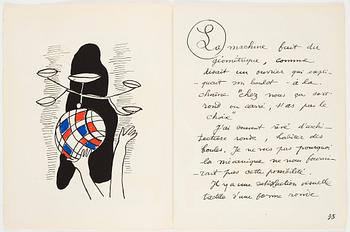 La machine fait du
géométrique, comme
disait un ouvrier qui expli-
quait son boulot - à la
chaîne "chez nous ça sort
rond ou carré, t'as pas le
choix"
J'ai souvent rêvé d'archi-
tecture ronde, habiter des
boules. Je ne vois pas pourquoi
la mécanique ne nous fourni-
rait pas cette possibilité.
Il y a une satisfaction visuelle
tactile d'une forme ronde